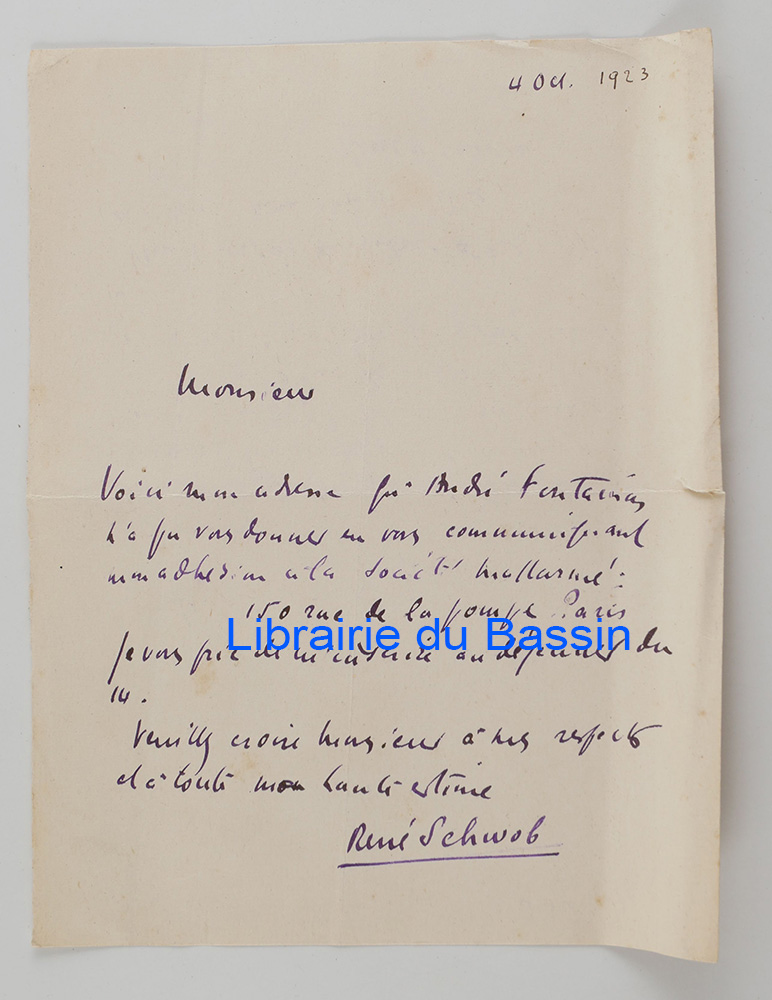 4 Oct. 1923
Monsieur
Voici mon adresse qu' André Fontainas
n'a pu vous donner en vous communiquant
mon adhésion à la Société Mallarmé :
150 rue de la pompe Paris
Librairie du Bassin
Je vous prie de m'inscrire au déjeuner du
14.
Veuillez croire Monsieur à mes respects
et à toute mon haute estime
René Schwob